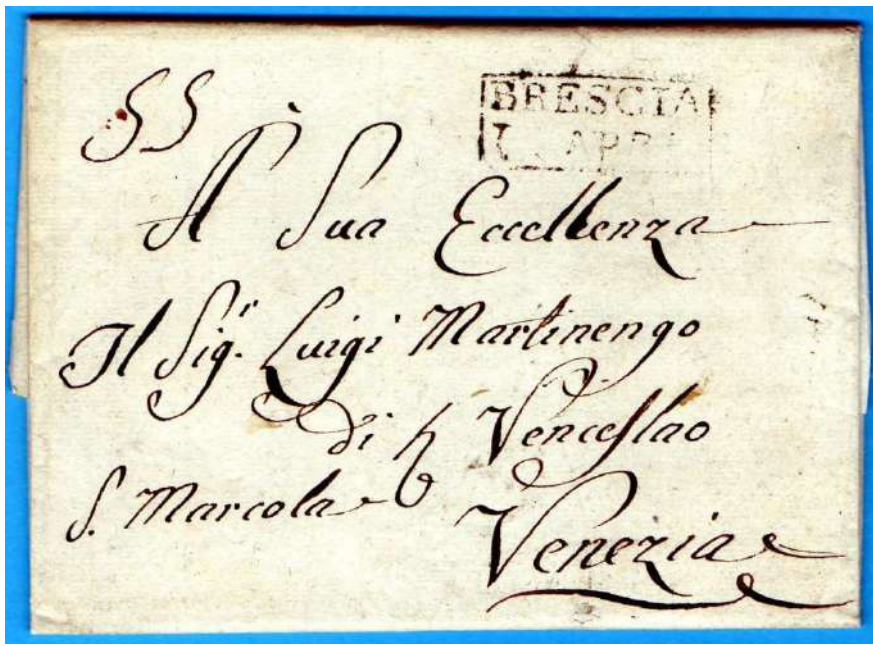 BRESCIA
APR
À Sua Eccellenza
Il Sig.r Luigi Martinengo
di Venceslao
S. Marcola
Venezia